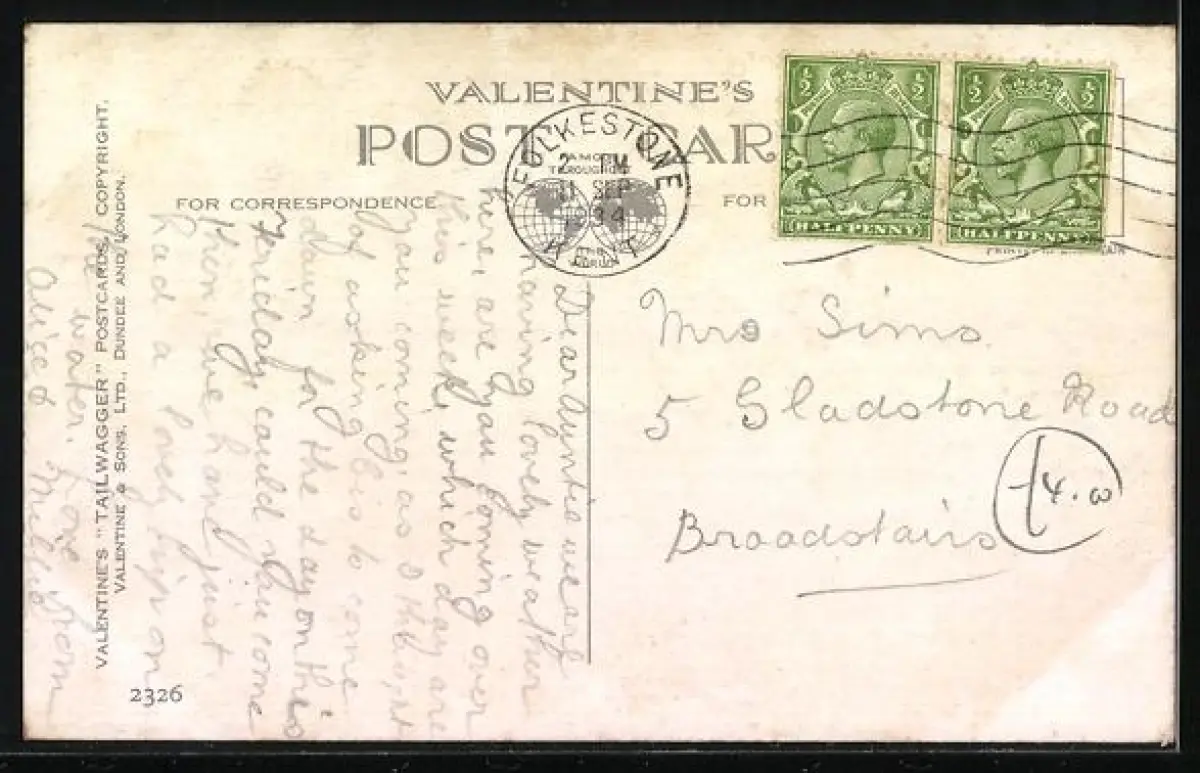 VALENTINE'S
POST CAR
FOR CORRESPONDENCE
FOR
FOLKESTONE
FAMOUS
THROUGHOUT
PM
11 SEP
34
THE
WORLD
KENT
½ ½
HALFPENNY
½ ½
HALFPENNY
Dear Auntie we are
having lovely weather
here, are you coming over
this week, which day are
you coming, as I thought
of asking to come
down for the day on this
Friday could you come
then, we have just
had a lovely trip on
the water. Love from
Alice &
Mrs Sims.
5 Gladstone Road
Broadstairs
4.
VALENTINE'S "TAILWAGGER" POSTCARDS, COPYRIGHT.
VALENTINE & SONS, LTD., DUNDEE AND LONDON.
2326